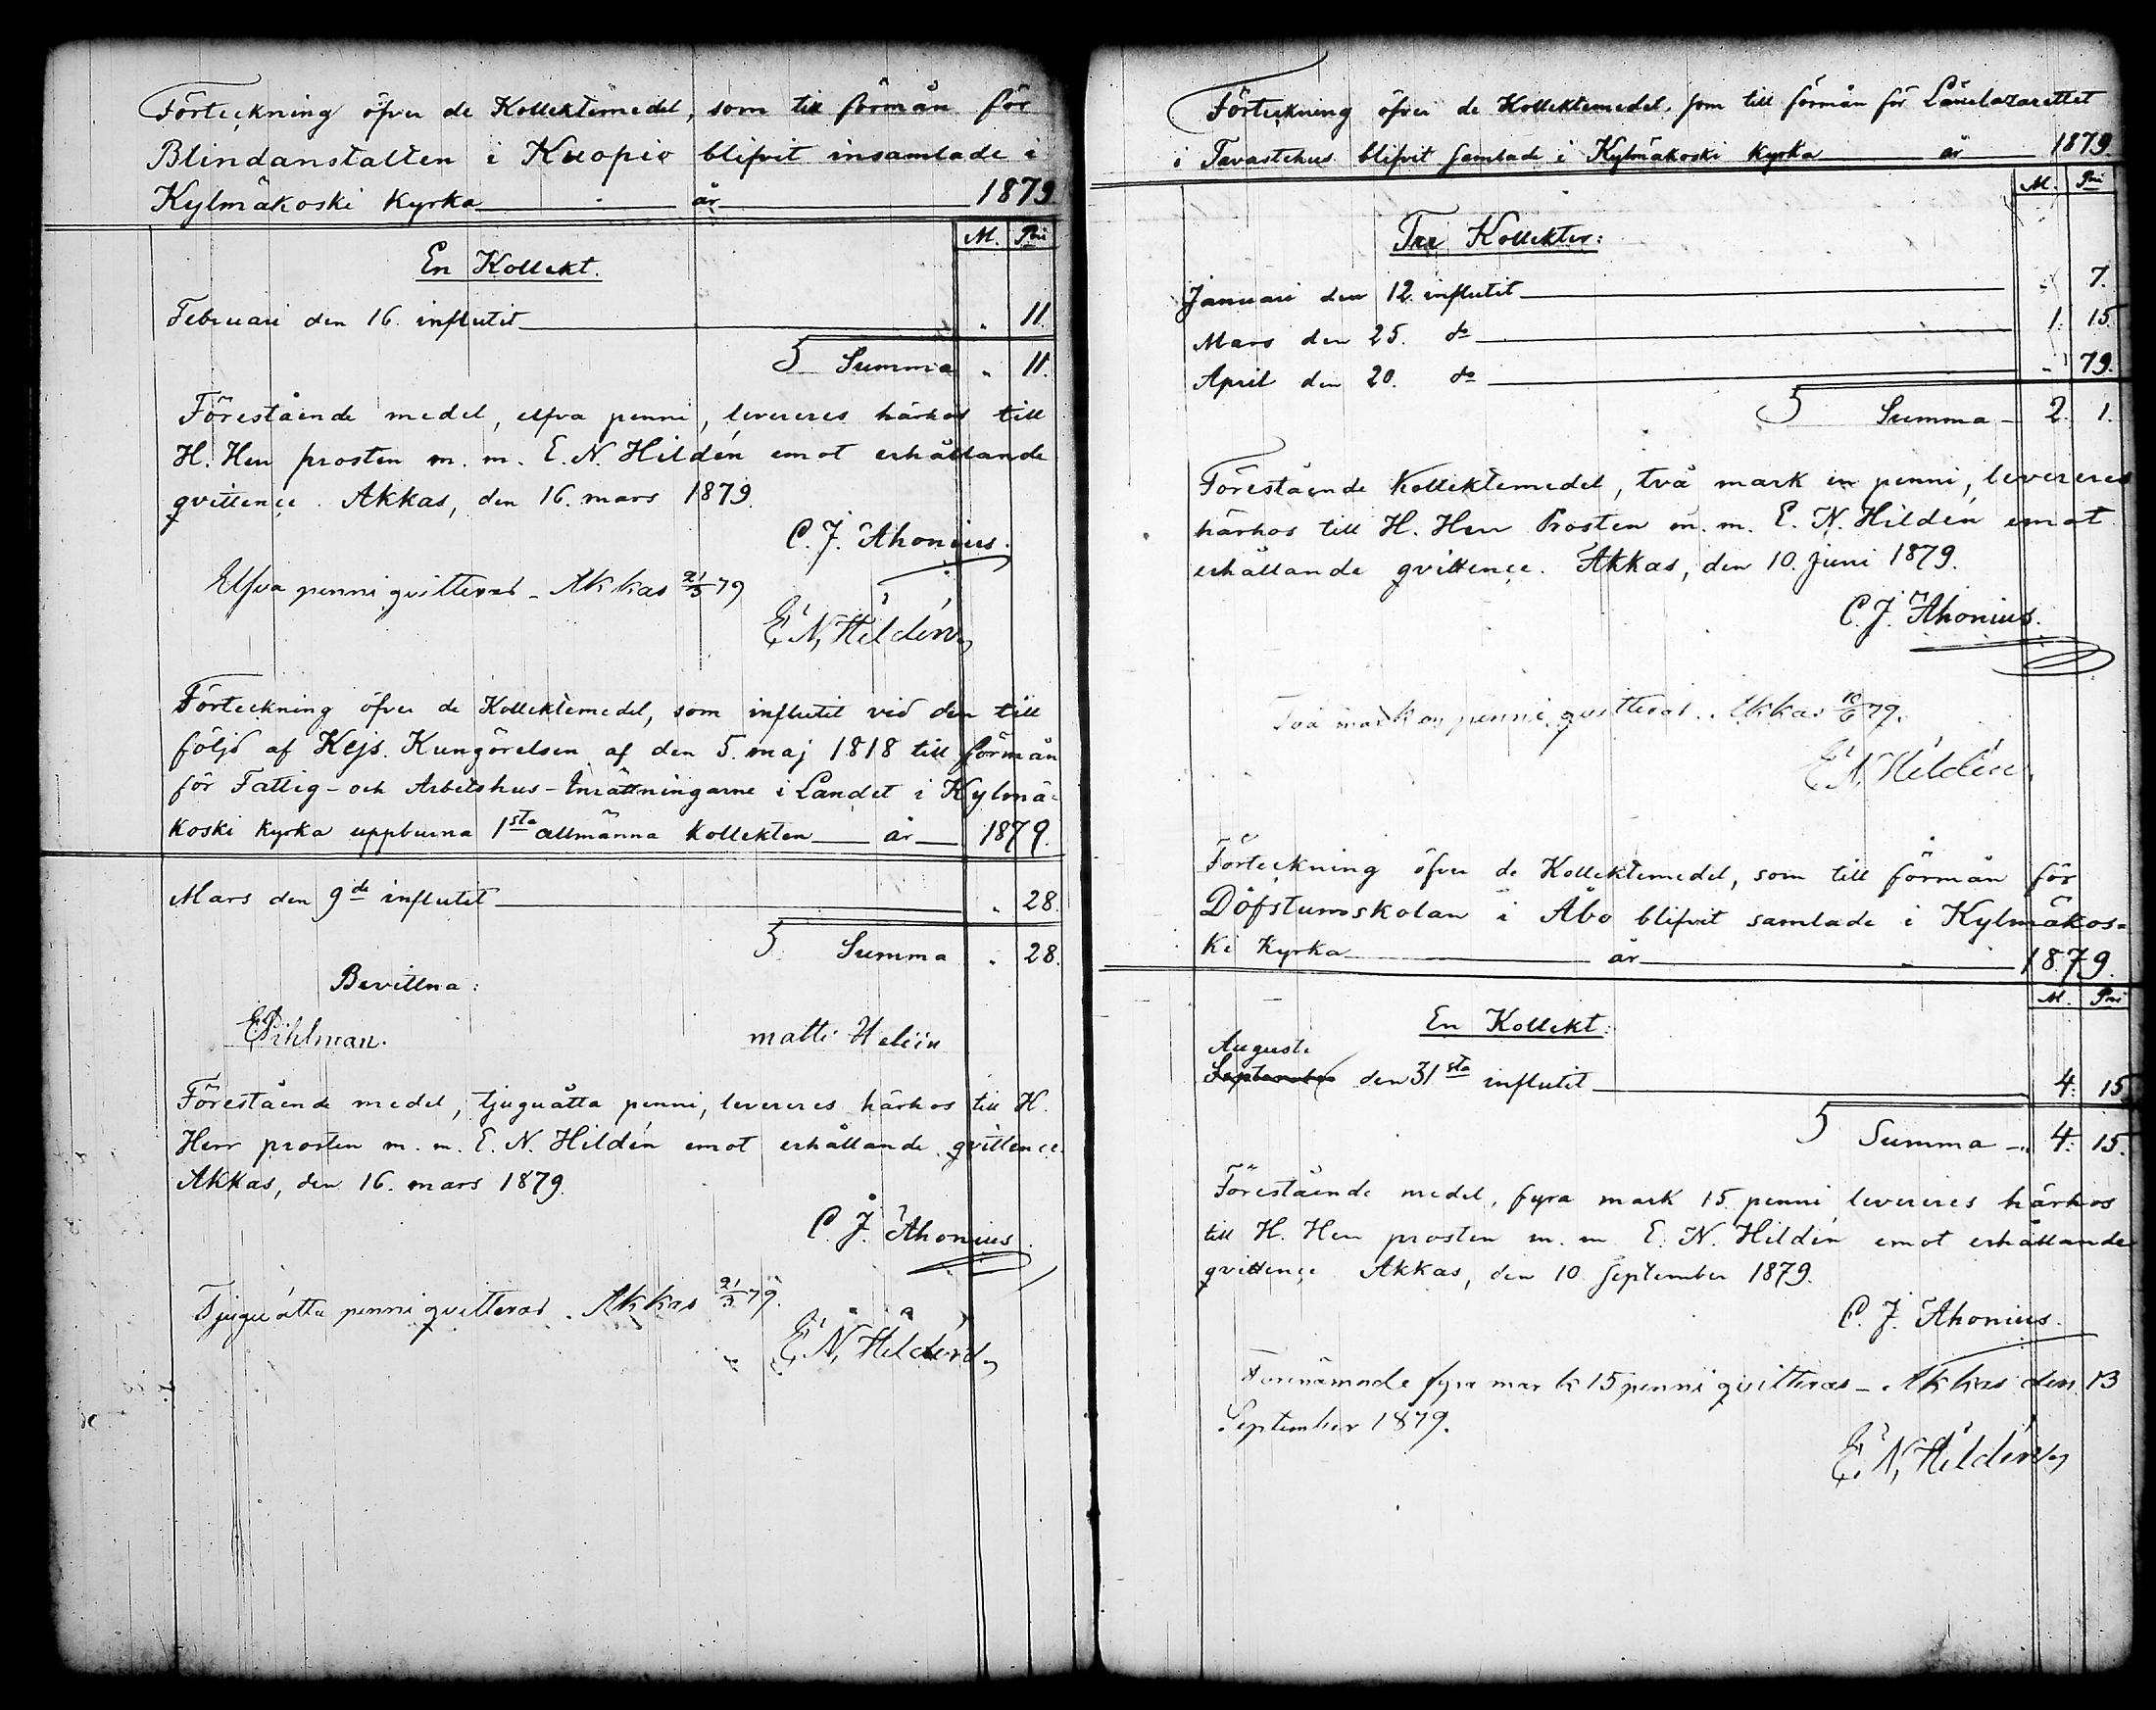 Förteckning öfver de Kollektemedel, som till förmån för
Blindanstalten i Kuopio blifvit insamlade i
Kylmäkoski kyrka år 1879
M. Pni
En Kollekt.
Februari den 16. influtit " 11.
S Summa " 11.
Förestående medel, elfva penni, levereres härhos till
H. Herr prosten m. m. E. N. Hildén emot erhållande
qvittençe. Akkas, den 16. mars 1879.
C. J. Ahonius.
Elfva penni qvitteras – Akkas 21/3 79
E. N. Hildén
Förteckning öfver de Kollektemedel, som influtit vid den till
följd af Kejs. Kungörelsen af den 5. maj 1818 till förmån
för Fattig- och Arbetshus-Inrättningarne i Landet i Kylmä-
koski kyrka uppburna 1sta allmänna kollekten år 1879.
Mars den 9de influtit " 28.
S Summa " 28.
Bevittna:
E Pihlman. matti Heliin
Förestående medel, tjuguåtta penni, levereres härhos till H.
Herr prosten m. m. E. N. Hildén emot erhållande qvittençe.
Akkas, den 16. mars 1879.
C. J. Ahonius
Tjuguåtta penni qvitteras. Akkas 21/3 79.
E. N. Hildén
Förteckning öfver de Kollektemedel, som till förmån för Länelazarettet
i Tavastehus blifvit samlade i Kylmäkoski kyrka år 1879.
M. Pni
Tre Kollekter:
Januari den 12. influtit " 7.
Mars den 25. do 1. 15
April den 20. do " 79.
S Summa – 2. 1.
Förestående Kollektemedel, två mark en penni, levereres
härhos till H. Herr Prosten m. m. E. N. Hildén emot
erhållande qvittençe. Akkas, den 10. Juni 1879.
C. J. Ahonius.
Två mark en penni qvitteras. Akkas 10/6 79.
E. N. Hildén
Förteckning öfver de Kollektemedel, som till förmån för
Döfstumskolan i Åbo blifvit samlade i Kylmäkos-
ki kyrka år 1879.
M. Pni
En Kollekt:
Augusti
September den 31sta influtit 4. 15
S Summa – 4. 15.
Förestående medel, fyra mark 15 penni, levereres härhos
till H. Herr prosten m. m. E. N. Hildén emot erhållande
qvittençe Akkas, den 10 September 1879.
C. J. Ahonius.
Förenämnde fyra mark 15 penni qvitteras – Akkas den 13
September 1879.
E. N. Hildén